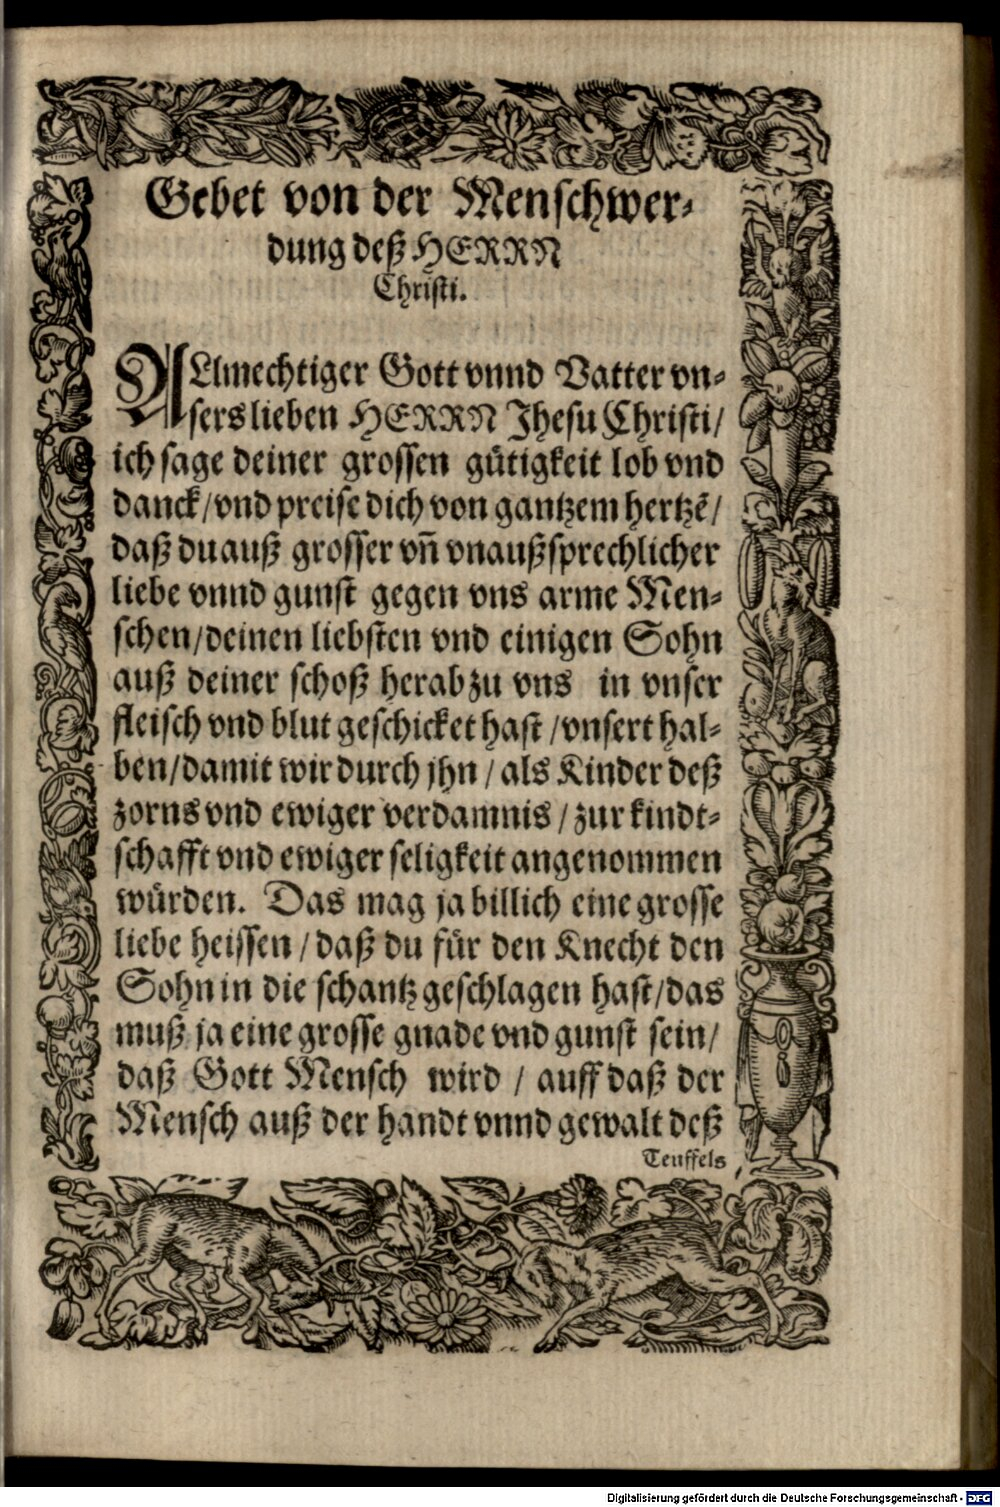 Gebet von der Menschwer-
dung deß HERRN
Christi.
ALlmechtiger Gott vnnd Vatter vn-
sers lieben HERRN Jhesu Christi/
ich sage deiner grossen gütigkeit lob vnd
danck/vnd preise dich von gantzem hertzē/
daß du auß grosser vn̄ vnaußsprechlicher
liebe vnnd gunst gegen vns arme Men-
schen/deinen liebsten vnd einigen Sohn
auß deiner schoß herab zu vns in vnser
fleisch vnd blut geschicket hast/vnsert hal-
ben/damit wir durch jhn/als Kinder deß
zorns vnd ewiger verdamnis/zur kindt-
schafft vnd ewiger seligkeit angenommen
würden. Das mag ja billich eine grosse
liebe heissen/daß du für den Knecht den
Sohn in die schantz geschlagen hast/das
muß ja eine grosse gnade vnd gunst sein/
daß Gott Mensch wird/auff daß der
Mensch auß der handt vnnd gewalt deß
Teuffels
Digitalisierung gefördert durch die Deutsche Forschungsgemeinschaft - DFG